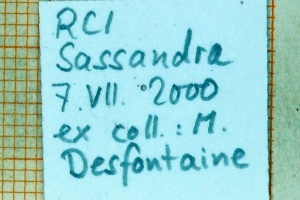 RCI
Sassandra
7.VII. 2000
ex coll.: M.
Desfontaine